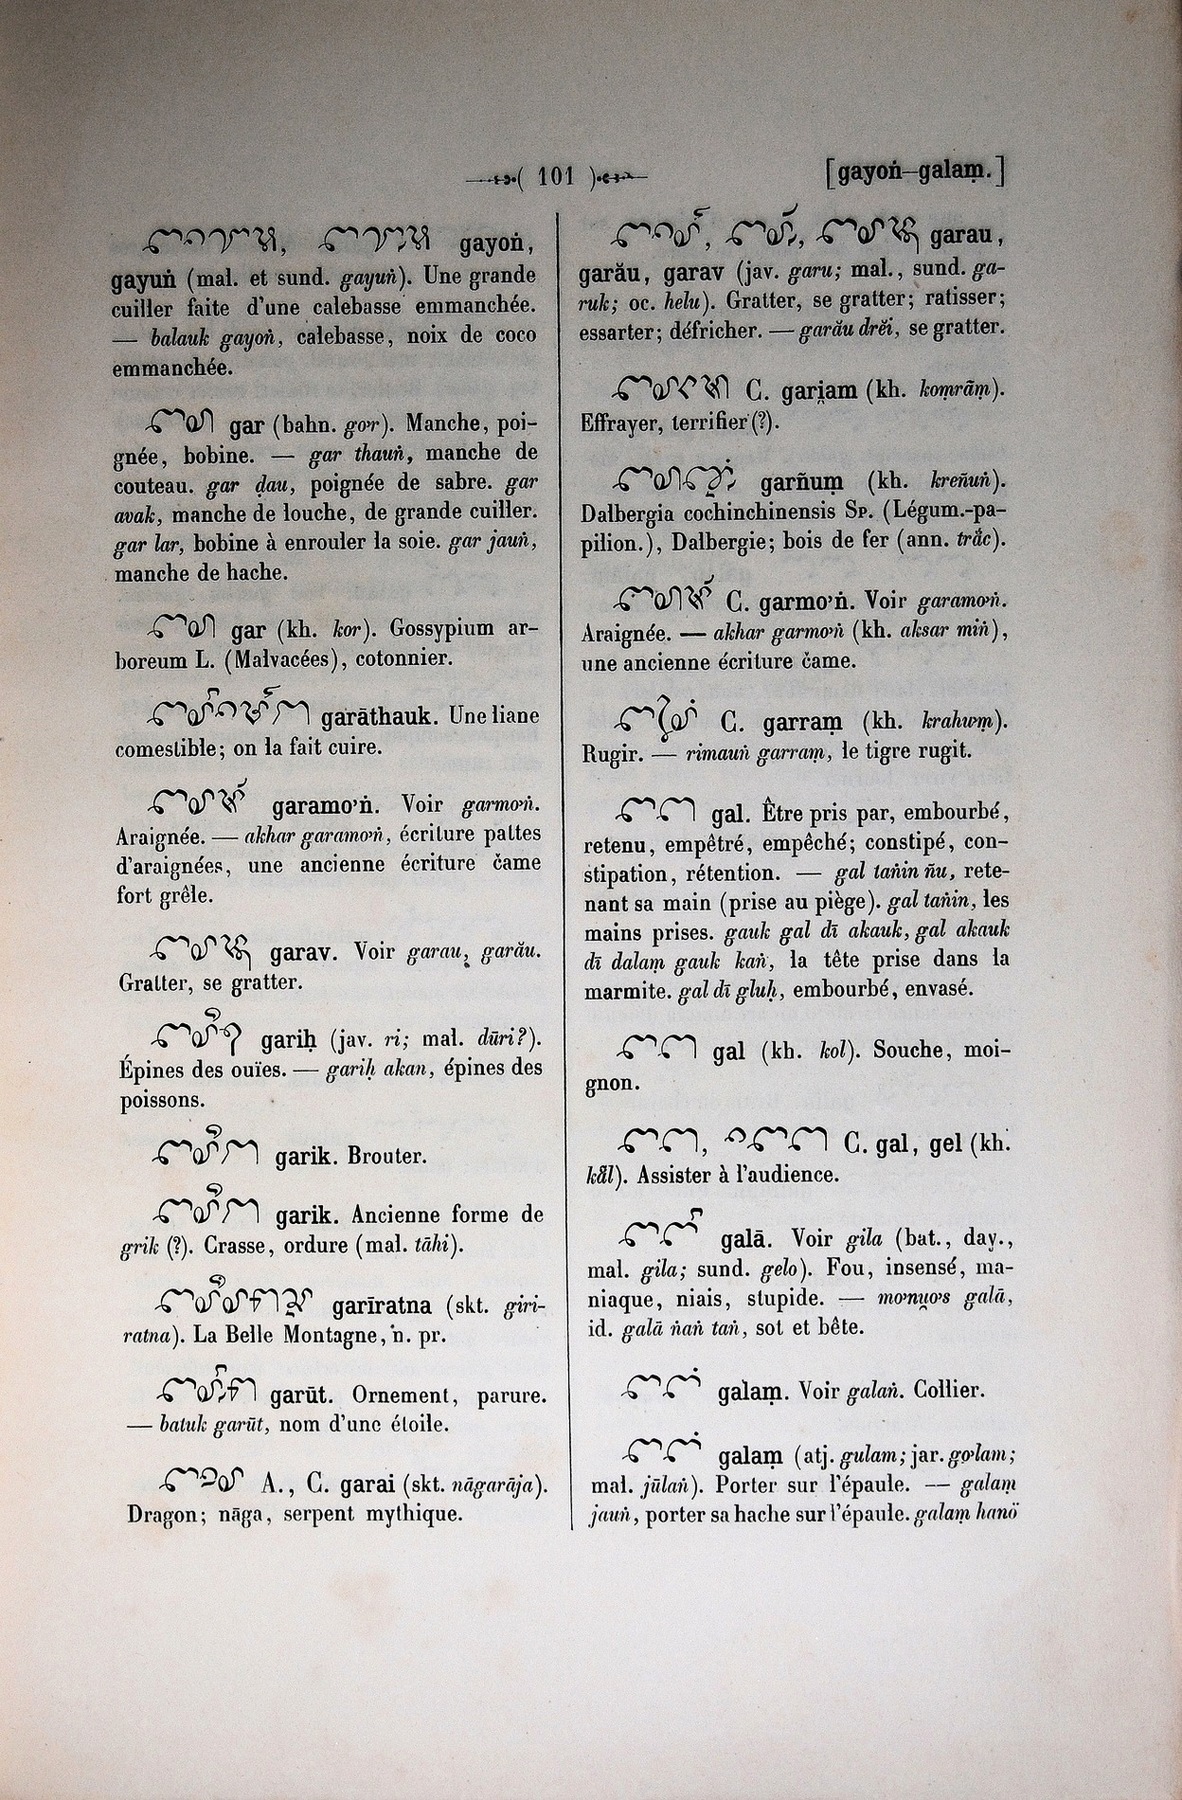 ( 101 )
[gayoṅ—galaṃ.]
gayoṅ,
gayuṅ (mal. et sund. gayuṅ). Une grande
cuiller faite d'une calebasse emmanchée.
— balauk gayoṅ, calebasse, noix de coco
emmanchée.
gar (bahn. go'r). Manche, poi-
gnée, bobine. — gar thauṅ, manche de
couteau. gar ḍau, poignée de sabre. gar
avak, manche de louche, de grande cuiller.
gar lar, bobine à enrouler la soie. gar jauṅ,
manche de hache.
gar (kh. kor). Gossypium ar-
boreum L. (Malvacées), cotonnier.
garāthauk. Une liane
comestible; on la fait cuire.
garamo'ṅ. Voir garmo'ṅ.
Araignée. — akhar garamo'ṅ, écriture pattes
d'araignées, une ancienne écriture čame
fort grêle.
garav. Voir garau, garău.
Gratter, se gratter.
gariḥ (jav. ri; mal. dūri?).
Épines des ouïes. — gariḥ akan, épines des
poissons.
garik. Brouter.
garik. Ancienne forme de
grik (?). Crasse, ordure (mal. tāhi).
garīratna (skt. giri-
ratna). La Belle Montagne, n. pr.
garūt. Ornement, parure.
— batuk garūt, nom d'une étoile.
A., C. garai (skt. nāgarāja).
Dragon; nāga, serpent mythique.
garau,
garău, garav (jav. garu; mal., sund. ga-
ruk; oc. helu). Gratter, se gratter; ratisser;
essarter; défricher. — garău drĕi, se gratter.
C. gari̯am (kh. koṃrāṃ).
Effrayer, terrifier (?).
garñuṃ (kh. kreñuṅ).
Dalbergia cochinchinensis Sp. (Légum.-pa-
pilion.), Dalbergie; bois de fer (ann. trắc).
C. garmo'ṅ. Voir garamo'ṅ.
Araignée. — akhar garmo'ṅ (kh. aksar miṅ),
une ancienne écriture čame.
C. garraṃ (kh. krahưṃ).
Rugir. — rimauṅ garraṃ, le tigre rugit.
gal. Être pris par, embourbé,
retenu, empêtré, empêché; constipé, con-
stipation, rétention. — gal taṅin ñu, rete-
nant sa main (prise au piège). gal taṅin, les
mains prises. gauk gal dī akauk, gal akauk
dī dalaṃ gauk kaṅ, la tête prise dans la
marmite. gal dī gluḥ, embourbé, envasé.
gal (kh. kol). Souche, moi-
gnon.
C. gal, gel (kh.
kål). Assister à l'audience.
galā. Voir gila (bat., day.,
mal. gila; sund. gelo). Fou, insensé, ma-
niaque, niais, stupide. — mo'nu̯o's galā,
id. galā ṅaṅ taṅ, sot et bête.
galaṃ. Voir galaṅ. Collier.
galaṃ (atj. gulam; jar. go'lam;
mal. jūlaṅ). Porter sur l'épaule. — galaṃ
jauṅ, porter sa hache sur l'épaule. galaṃ hanö